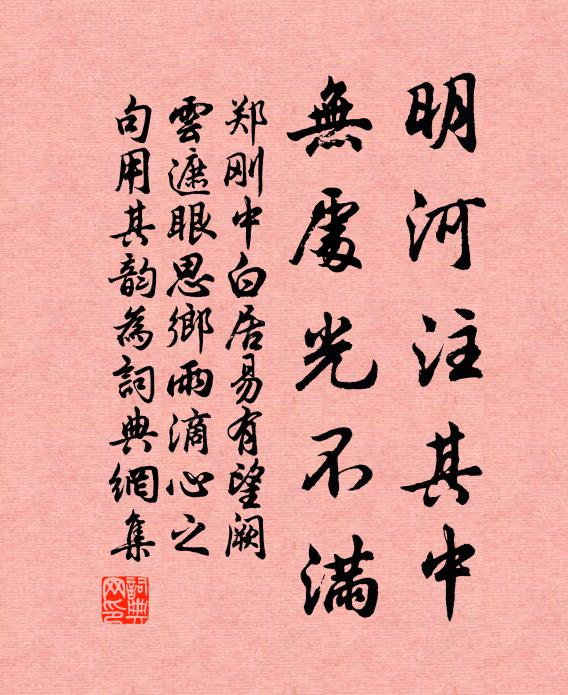 明河注其中
無處光不滿
郑刚中白居易有望阙
雲遮眼思鄉雨滴心之
句用其韵為詞典網集
詞典
网印